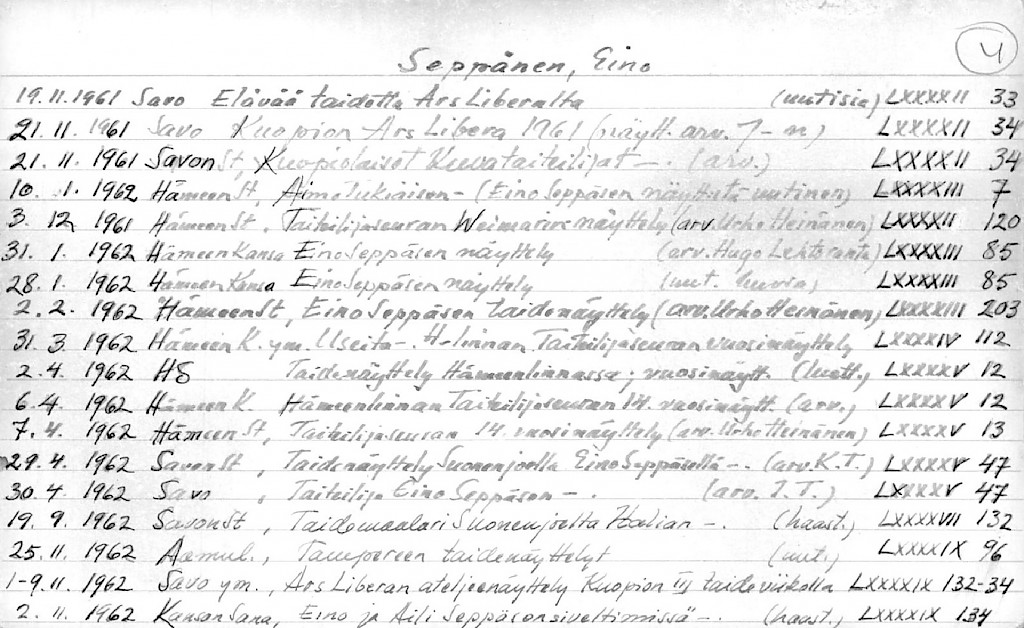 4
Seppänen, Eino
19.11.1961 Savo Elävää taidetta Ars Liberalta (uutisia) LXXXXII 33
21.11.1961 Savo Kuopion Ars Libera 1961 (näytt. arv. J-n) LXXXXII 34
21.11.1961 Savon St, Kuopiolaiset Kuvataiteilijat -. (arv.) LXXXXII 34
10. 1. 1962 Hämeen St, Aimo Tukiaisen - (Eino Seppäsen näyttelystä uutinen) LXXXXIII 7
3. 12. 1961 Hämeen St, Taiteilijaseuran näyttely (arv. Urho Heinänen) LXXXXII 120
31. 1. 1962 Hämeen Kansa Eino Seppäsen näyttely (arv. Hugo Lehtoranta) LXXXXIII 85
28. 1. 1962 Hämeen Kansa Eino Seppäsen näyttely (uut. kuvia) LXXXXIII 85
2. 2. 1962 Hämeen St, Eino Seppäsen taidenäyttely (arv. Urho Heinänen) LXXXXIII 203
31. 3. 1962 Hämeen K. ym. Useita -. H-linnan Taiteilijaseuran vuosinäyttely LXXXXIV 112
2. 4. 1962 HS Taidenäyttely Hämeenlinnassa; vuosinäytt. (luett.) LXXXXV 12
6.4. 1962 Hämeen K. Hämeenlinnan Taiteilijaseuran 14. vuosinäytt. (arv.) LXXXXV 12
7. 4. 1962 Hämeen St, Taiteilijaseuran 14. vuosinäyttely (arv. Urho Heinänen) LXXXXV 13
29. 4. 1962 Savon St, Taidenäyttely Suonenjoella Eino Seppäseltä -. (arv. K.T.) LXXXXV 47
30. 4 1962 Savo, Taiteilija Eino Seppäsen -. (arv. I.T.) LXXXXV 47
19. 9. 1962 Savon St, Taidemaalari Suonenjoelta Italian -. (haast.) LXXXXVII 132
25. 11. 1962 Aamul., Tampereen taidenäyttelyt (uut.) LXXXXIX 96
1-9.11. 1962 Savo ym., Ars Liberan ateljeenäyttely Kuopion III taideviikolla LXXXXIX 132-34
2. 11. 1962 Kansan Sana, Eino ja Aili Seppäsen siveltimissä -. (haast.) LXXXXIX 134